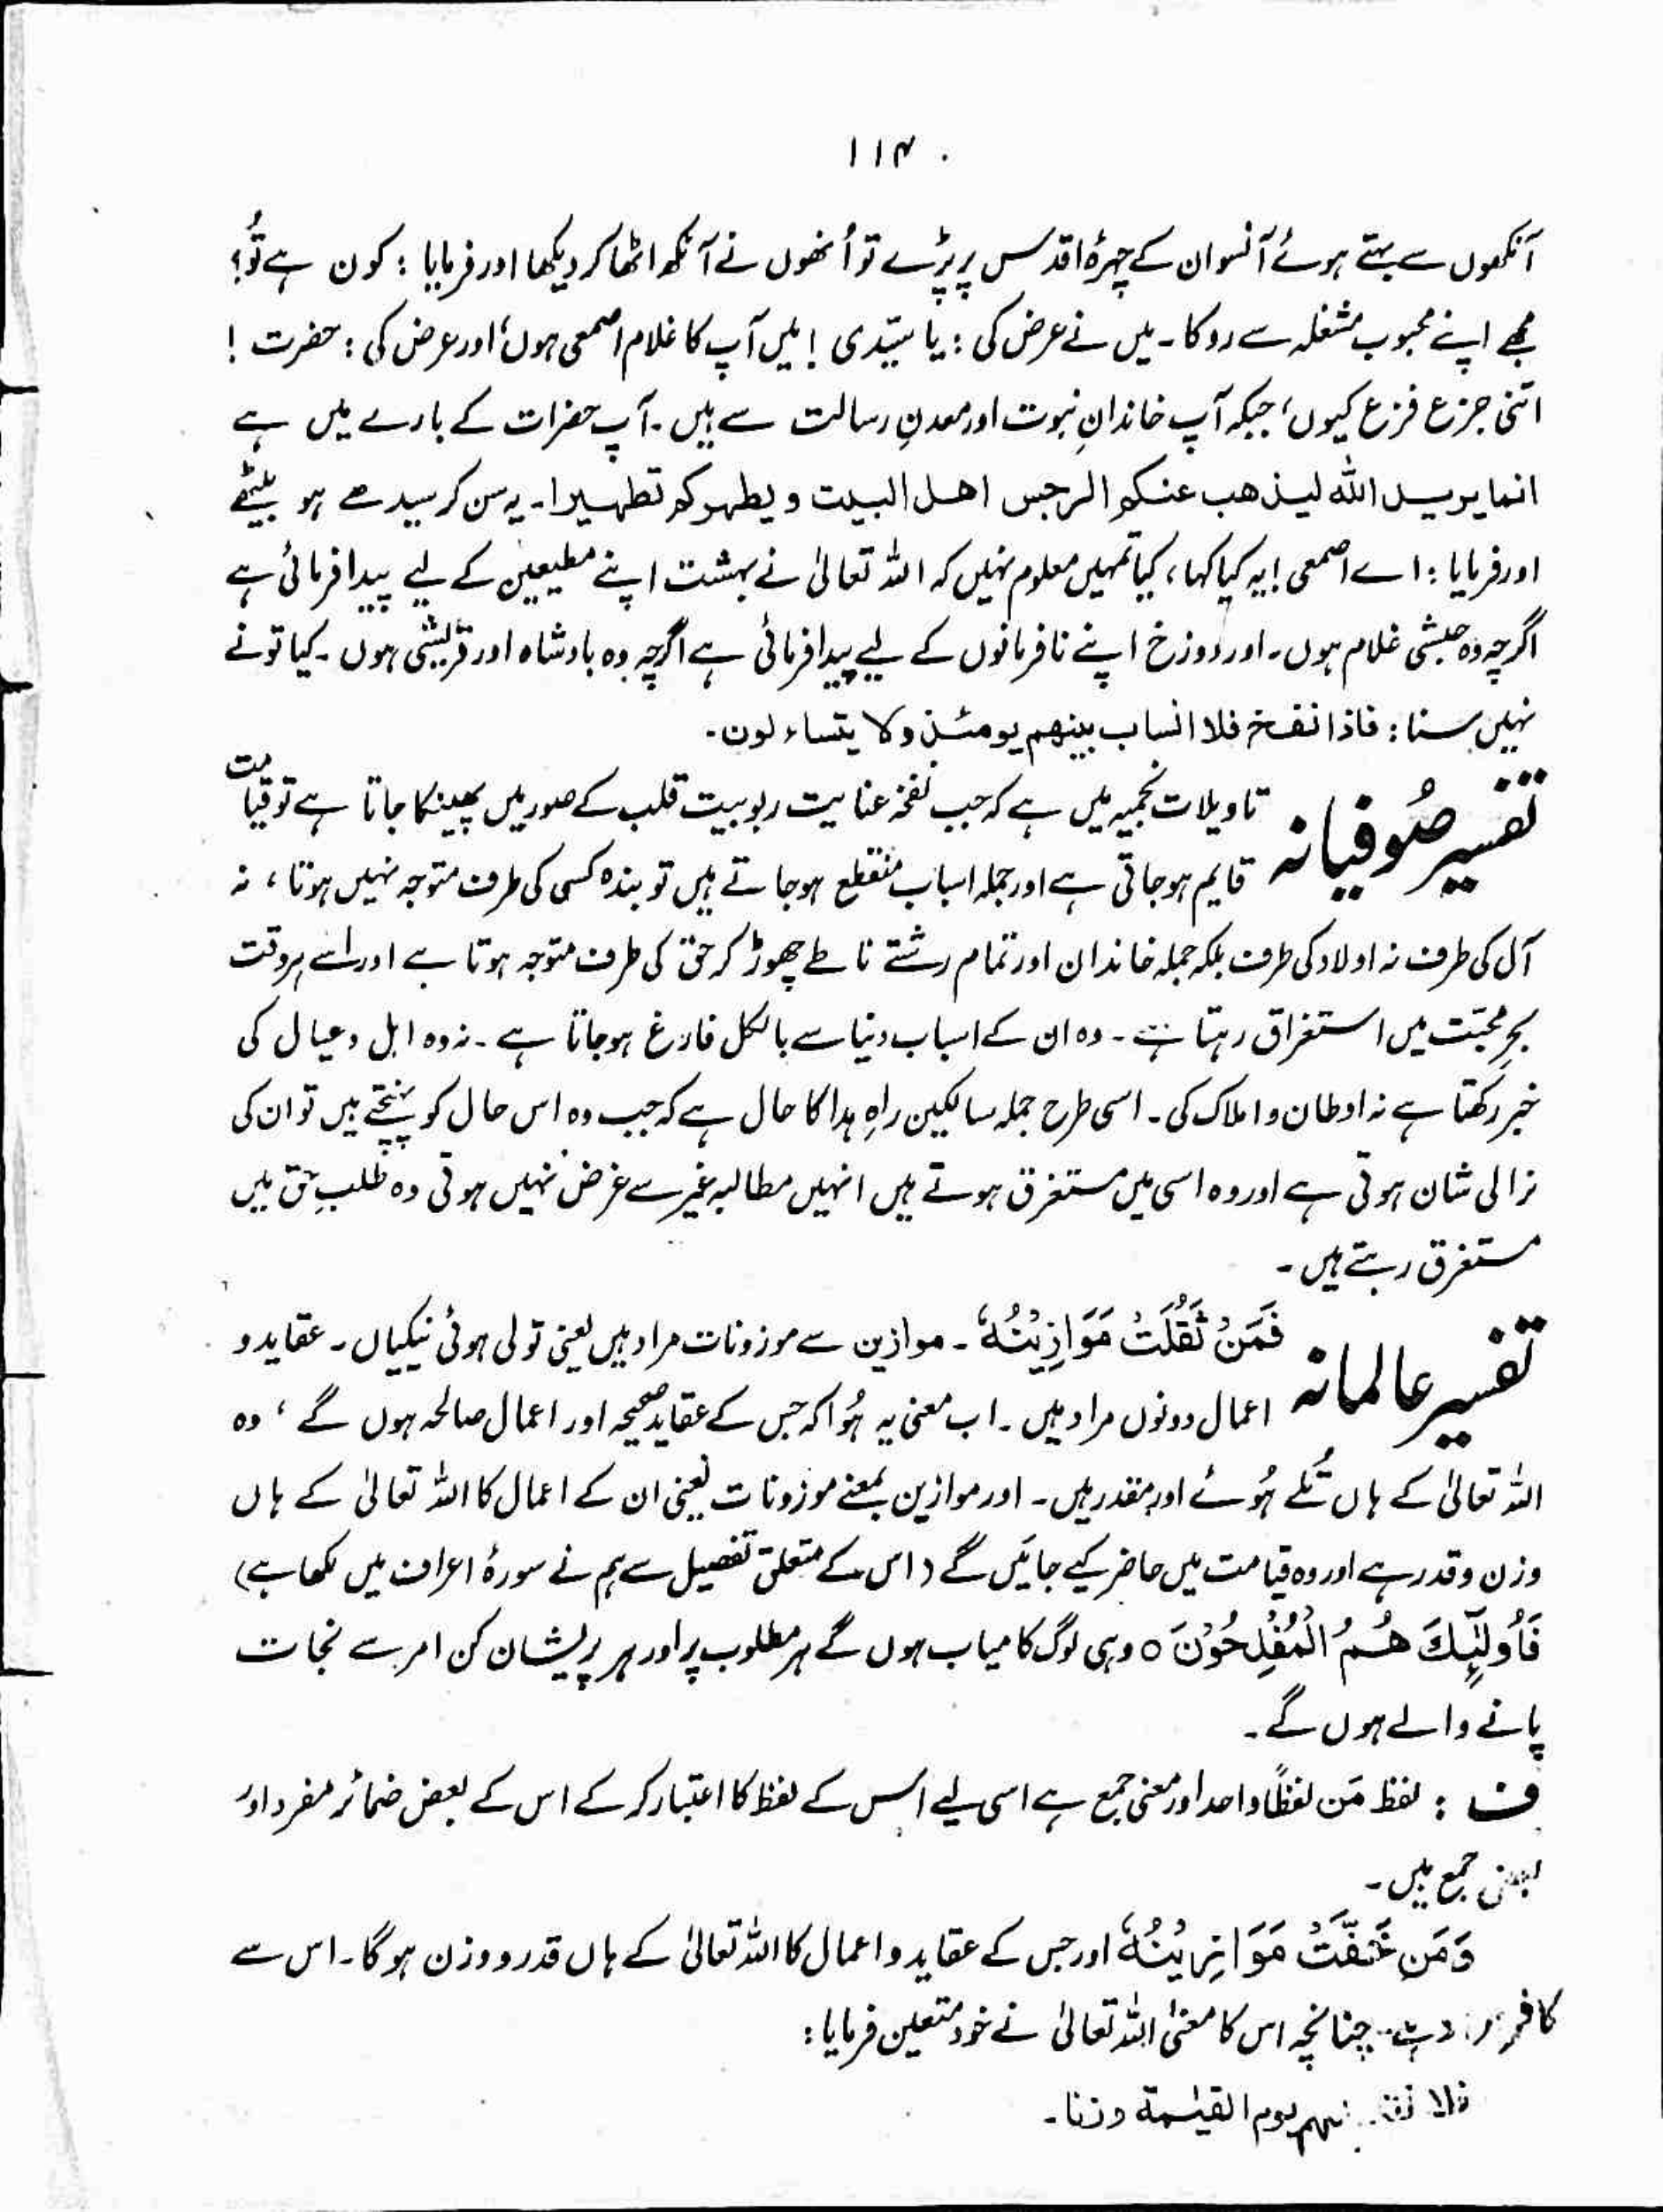 ۱۱۴
آنکھوں سے بہتے ہوئے آنسو ان کے چہرۂ اقدس پر پڑے تو اُنھوں نے آنکھ اٹھا کر دیکھا اور فرمایا : کون ہے تُو؟
مجھے اپنے محبوب مشغلہ سے روکا ۔ میں نے عرض کی : یا سیّدی ! میں آپ کا غلام اصمعی ہوں، اور عرض کی : حضرت !
اتنی جزع فزع کیوں، جبکہ آپ خاندانِ نبوت اور معدنِ رسالت سے ہیں ۔ آپ حضرات کے بارے میں ہے
انما یرید اللہ لیذھب عنکم الرجس اھل البیت و یطہرکم تطہیرا ۔ یہ سن کر سیدھے ہو بیٹھے
اور فرمایا : اے اصمعی ! یہ کیا کہا، کیا تمہیں معلوم نہیں کہ اللہ تعالیٰ نے بہشت اپنے مطیعین کے لیے پیدا فرمائی ہے
اگرچہ وہ حبشی غلام ہوں ۔ اور دوزخ اپنے نافرمانوں کے لیے پیدا فرمائی ہے اگرچہ وہ بادشاہ اور قریشی ہوں ۔ کیا تو نے
نہیں سنا : فاذا نفخ فلا انساب بینھم یومئذ ولا یتساءلون ۔
تفسیر صُوفیانہ تاویلات نجمیہ میں ہے کہ جب نفخۂ عنایت ربوبیت قلب کے صور میں پھینکا جاتا ہے تو قیامت
قایم ہوجاتی ہے اور جملہ اسباب منقطع ہوجاتے ہیں تو بندہ کسی کی طرف متوجہ نہیں ہوتا، نہ
آل کی طرف نہ اولاد کی طرف بلکہ جملہ خاندان اور تمام رشتے ناطے چھوڑ کر حق کی طرف متوجہ ہوتا ہے اور اسے ہر وقت
بحرِ محبّت میں استغراق رہتا ہے ۔ وہ ان کے اسباب دنیا سے بالکل فارغ ہوجاتا ہے ۔ نہ وہ اہل و عیال کی
خبر رکھتا ہے نہ اوطان و املاک کی ۔ اسی طرح جملہ سالکین راہِ ہدا کا حال ہے کہ جب وہ اس حال کو پہنچتے ہیں تو ان کی
نرالی شان ہوتی ہے اور وہ اسی میں مستغرق ہوتے ہیں انہیں مطالبہ غیر سے غرض نہیں ہوتی وہ طلبِ حق میں
مستغرق رہتے ہیں ۔
تفسیر عالمانہ فَمَنْ ثَقُلَتْ مَوَازِیْنُہٗ ۔ موازین سے موزونات مراد ہیں یعنی تولی ہوئی نیکیاں ۔ عقاید و
اعمال دونوں مراد ہیں ۔ اب معنی یہ ہُوا کہ جس کے عقاید صحیحہ اور اعمال صالحہ ہوں گے، وہ
اللہ تعالیٰ کے ہاں تُلے ہُوئے اور مقدر ہیں ۔ اور موازین بمعنے موزونات یعنی ان کے اعمال کا اللہ تعالیٰ کے ہاں
وزن و قدر ہے اور وہ قیامت میں حاضر کیے جائیں گے (اس کے متعلق تفصیل سے ہم نے سورۂ اعراف میں لکھا ہے)
فَاُولٰٓئِکَ ھُمُ الْمُفْلِحُوْنَ ○ وہی لوگ کامیاب ہوں گے ہر مطلوب پر اور ہر پریشان کن امر سے نجات
پانے والے ہوں گے ۔
ف : لفظ مَن لفظًا واحد اور معنی جمع ہے اسی لیے اس کے لفظ کا اعتبار کر کے اس کے بعض ضمائر مفرد اور
بعض جمع ہیں ۔
وَمَنْ خَفَّتْ مَوَازِیْنُہٗ اور جس کے عقاید و اعمال کا اللہ تعالیٰ کے ہاں قدر و وزن ہوگا ۔ اس سے
کافر چنانچہ اس کا معنیٰ اللہ تعالیٰ نے خود متعین فرمایا :
فلا یوم القیٰمۃ وزنا ۔